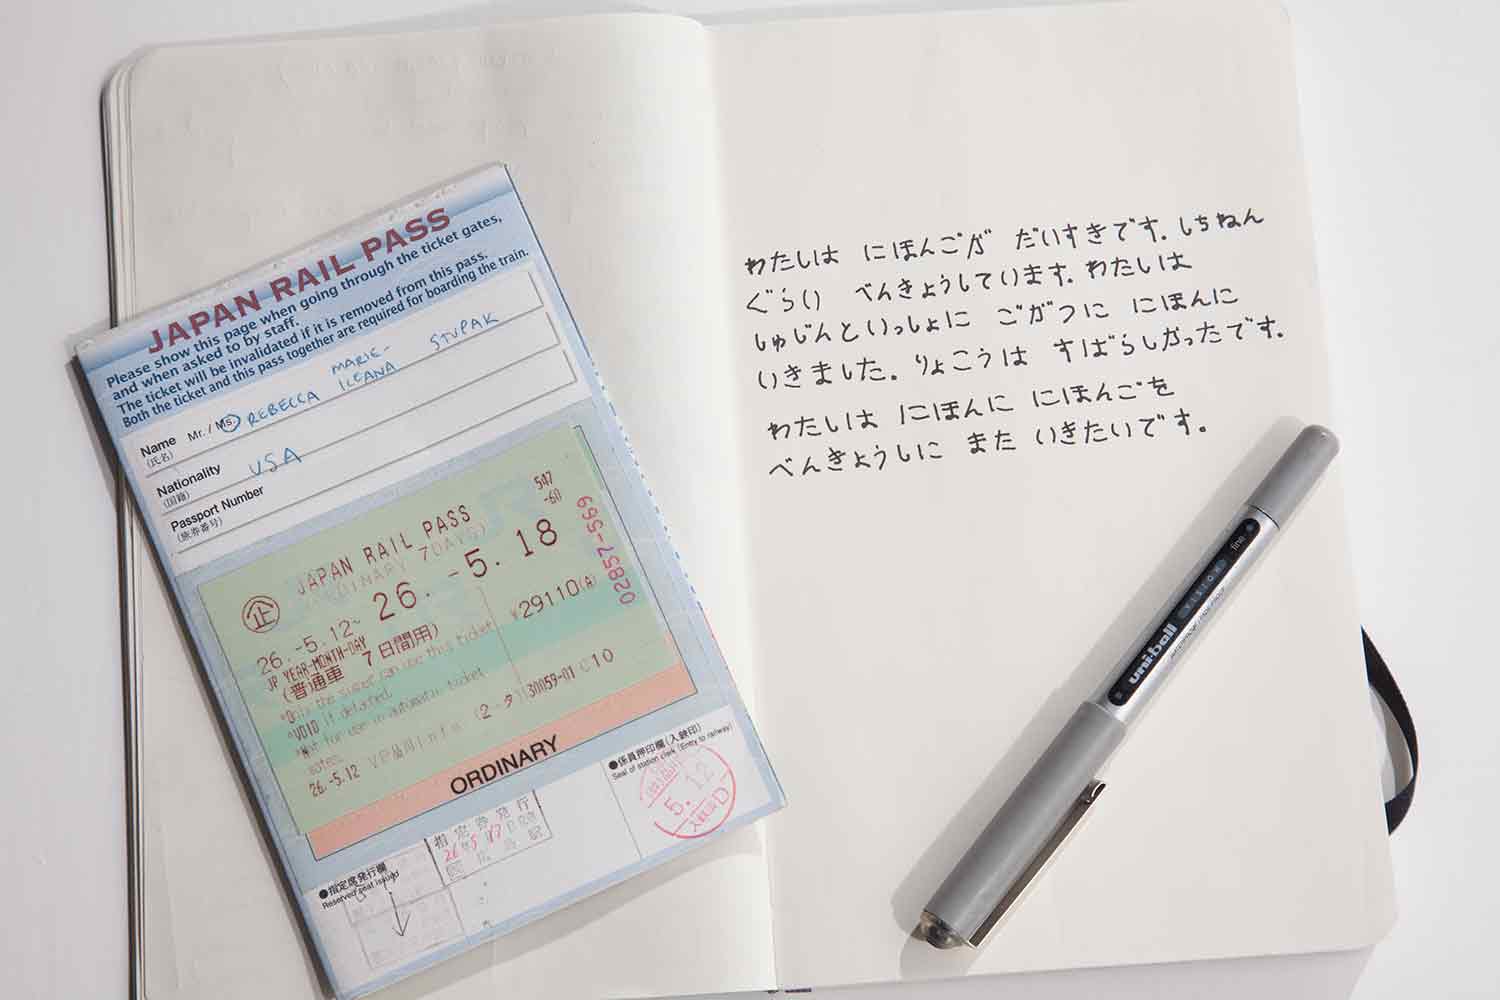 JAPAN RAIL PASS
Please show this page when going through the ticket gates,
and when asked to by staff.
The ticket will be invalidated if it is removed from this pass.
Both the ticket and this pass together are required for boarding the train.
Name Mr. / Ms. REBECCA MARIE-ILEANA STUPAK
(氏名)
Nationality USA
(国籍)
Passport Number
(旅券番号)
547
-60
JAPAN RAIL PASS
ORDINARY 7DAYS)
企 26.-5.12~ 26.-5.18
JP YEAR-MONTH-DAY ¥29110(A)
(普通車 7日間用)
02857-569
*Only the user can use this ticket.
*VOID if detached.
*Not for use in automatic ticket
gates.
26.-5.12 (2-タ) 30059-01 C10
ORDINARY
●指定席発行欄
Reserved seat issued
指定券発行
26 5 13
●係員押印欄(入鋏印)
Seal of station clerk (Entry to railway)
5.12
わたしは にほんごが だいすきです. しちねん
ぐらい べんきょうしています. わたしは
しゅじんといっしょに ごがつに にほんに
いきました。りょこうは すばらしかったです.
わたしは にほんに にほんごを
べんきょうしに また いきたいです。
uni-ball VISION fine